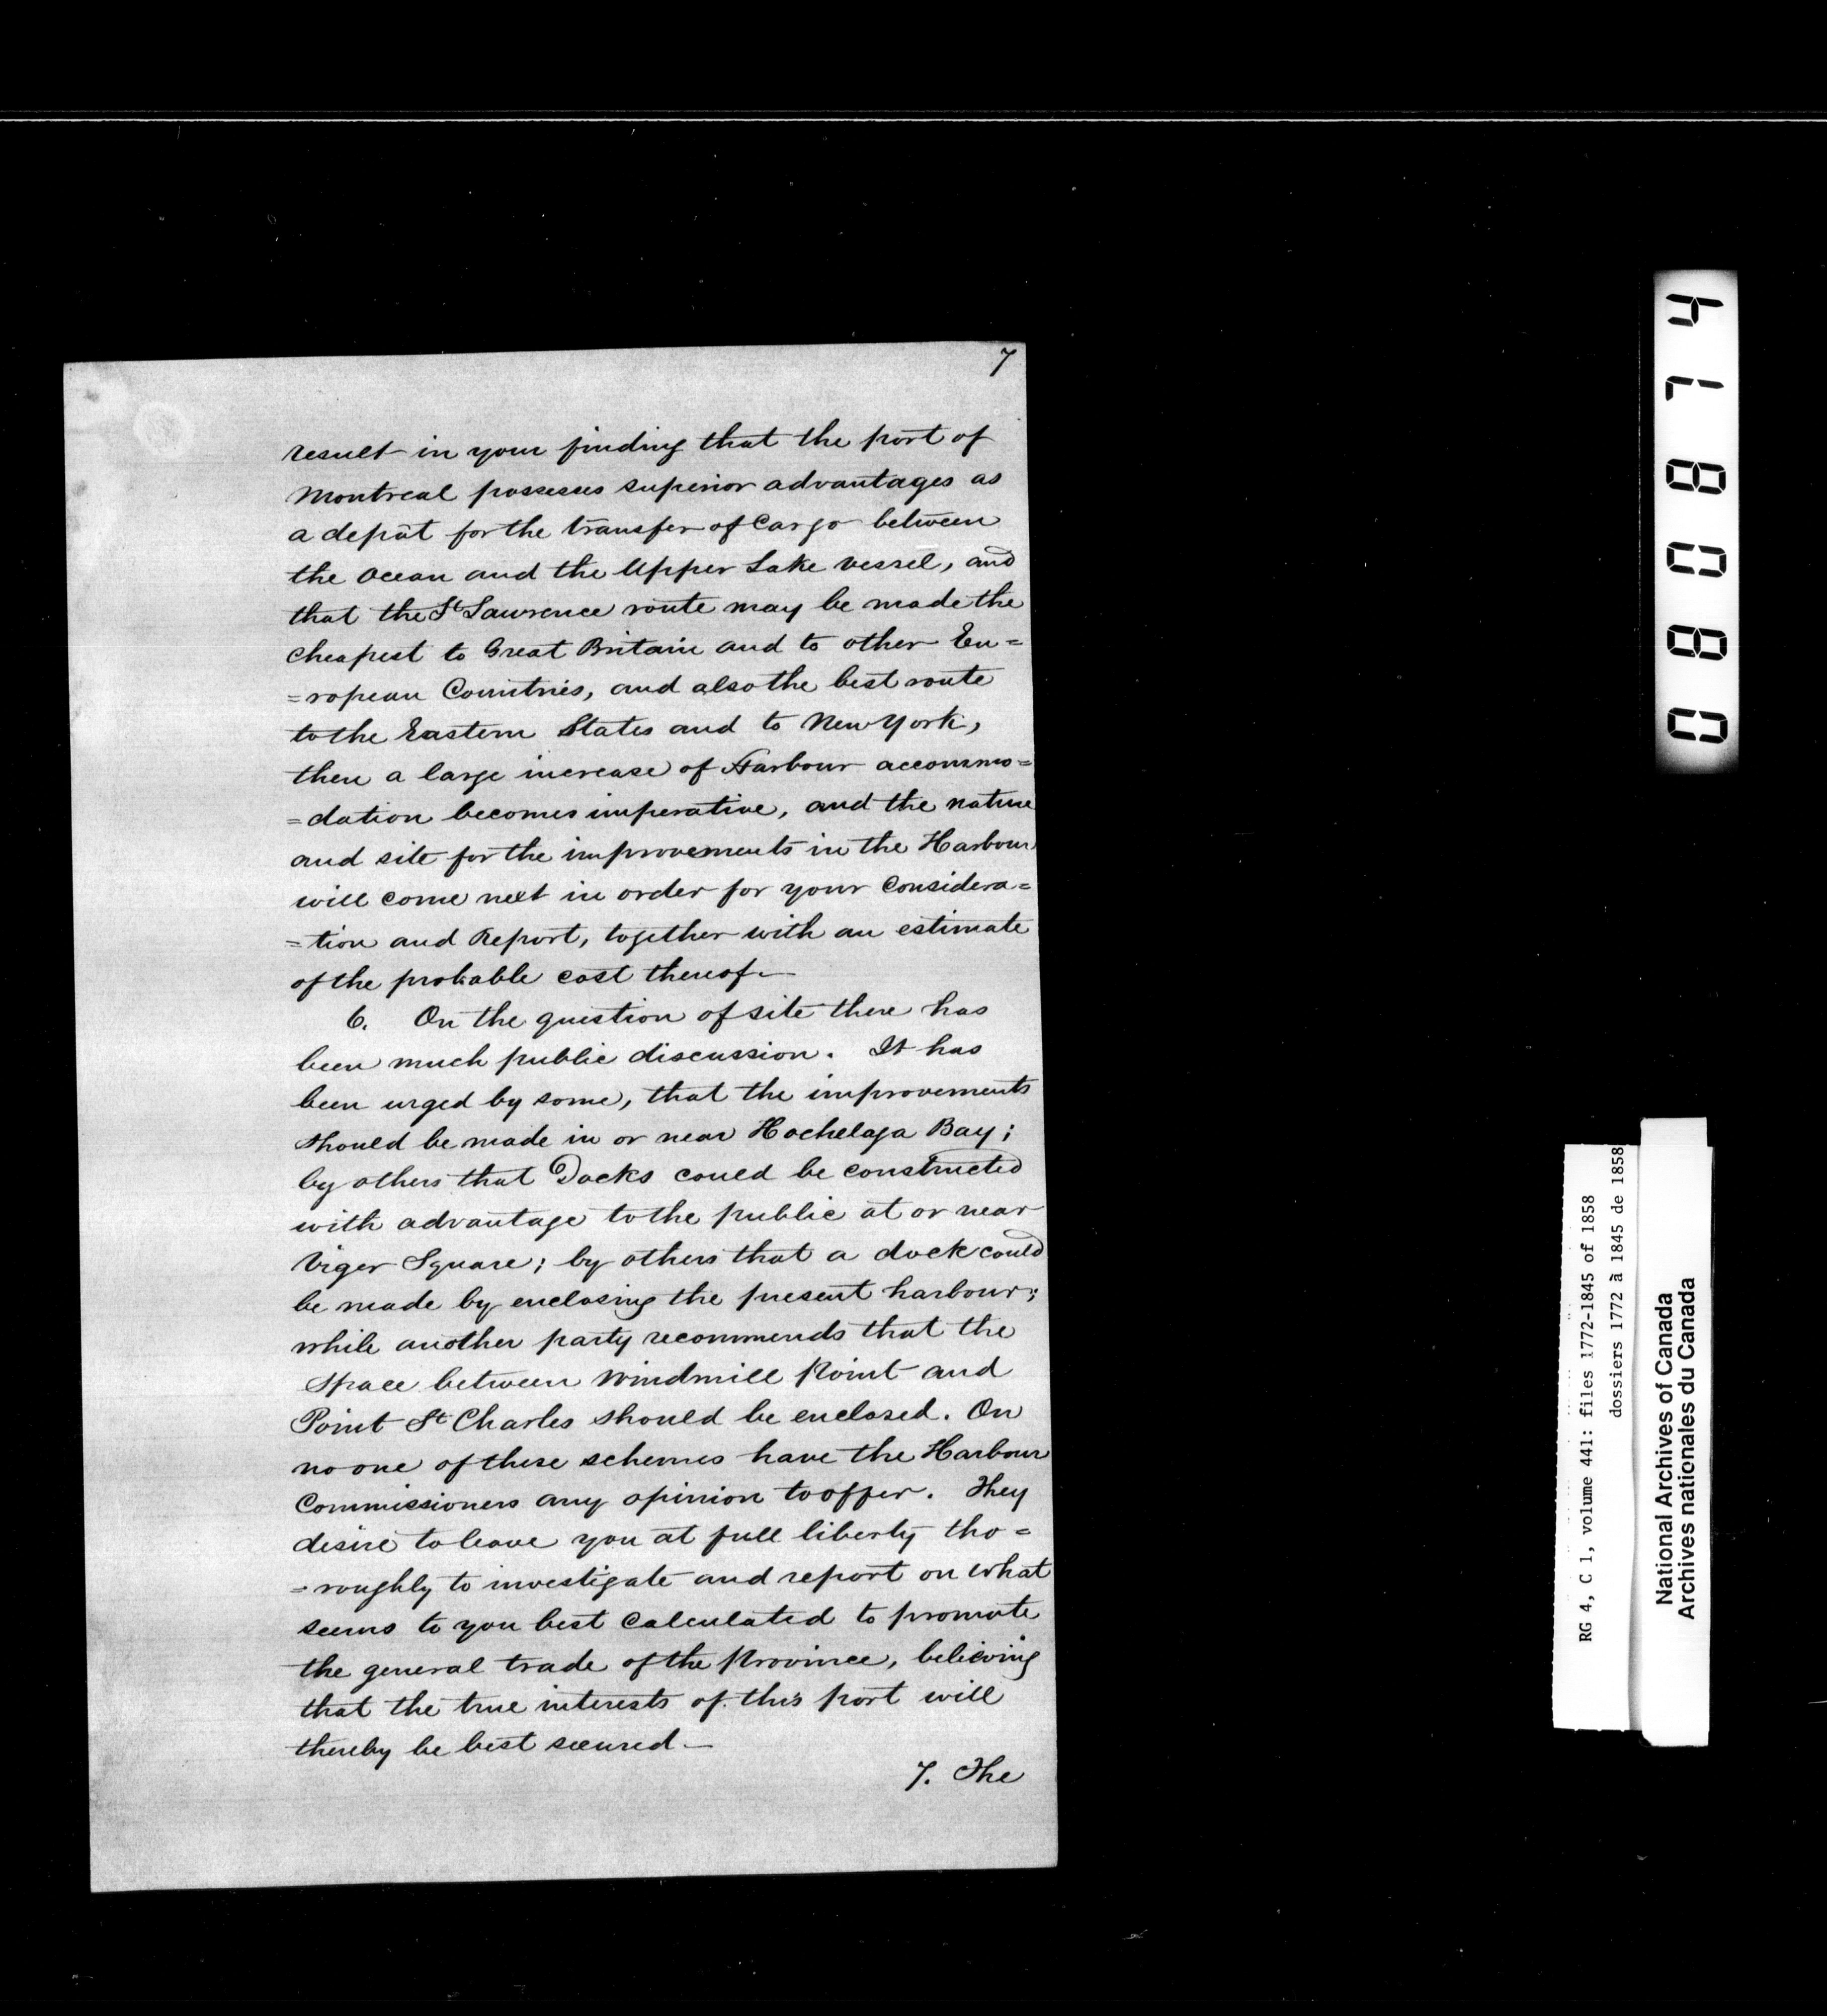 7
result in your finding that the port of
Montreal possesses superior advantages as
a depôt for the transfer of Cargo between
the Ocean and the Upper Lake vessel, and
that the St Lawrence route may be made the
cheapest to Great Britain and to other Eu=
=ropean Countries, and also the best route
to the Eastern States and to New York,
then a large increase of Harbour accommo=
=dation becomes imperative, and the nature
and site for the improvements in the Harbour
will come next in order for your Considera=
=tion and Report, together with an estimate
of the probable cost thereof—
6. On the question of site there has
been much public discussion. It has
been urged by some, that the improvements
should be made in or near Hochelaga Bay;
by others that Docks could be constructed
with advantage to the public at or near
Viger Square; by others that a dock could
be made by enclosing the present harbour;
while another party recommends that the
space between Windmill Point and
Point St Charles should be enclosed. On
no one of these schemes have the Harbour
Commissioners any opinion to offer. They
desire to leave you at full liberty tho=
=roughly to investigate and report on what
seems to you best calculated to promote
the general trade of the Province, believing
that the true interests of this port will
thereby be best secured—
7. The
080874
RG 4, C 1, volume 441: files 1772-1845 of 1858
dossiers 1772 à 1845 de 1858
National Archives of Canada
Archives nationales du Canada